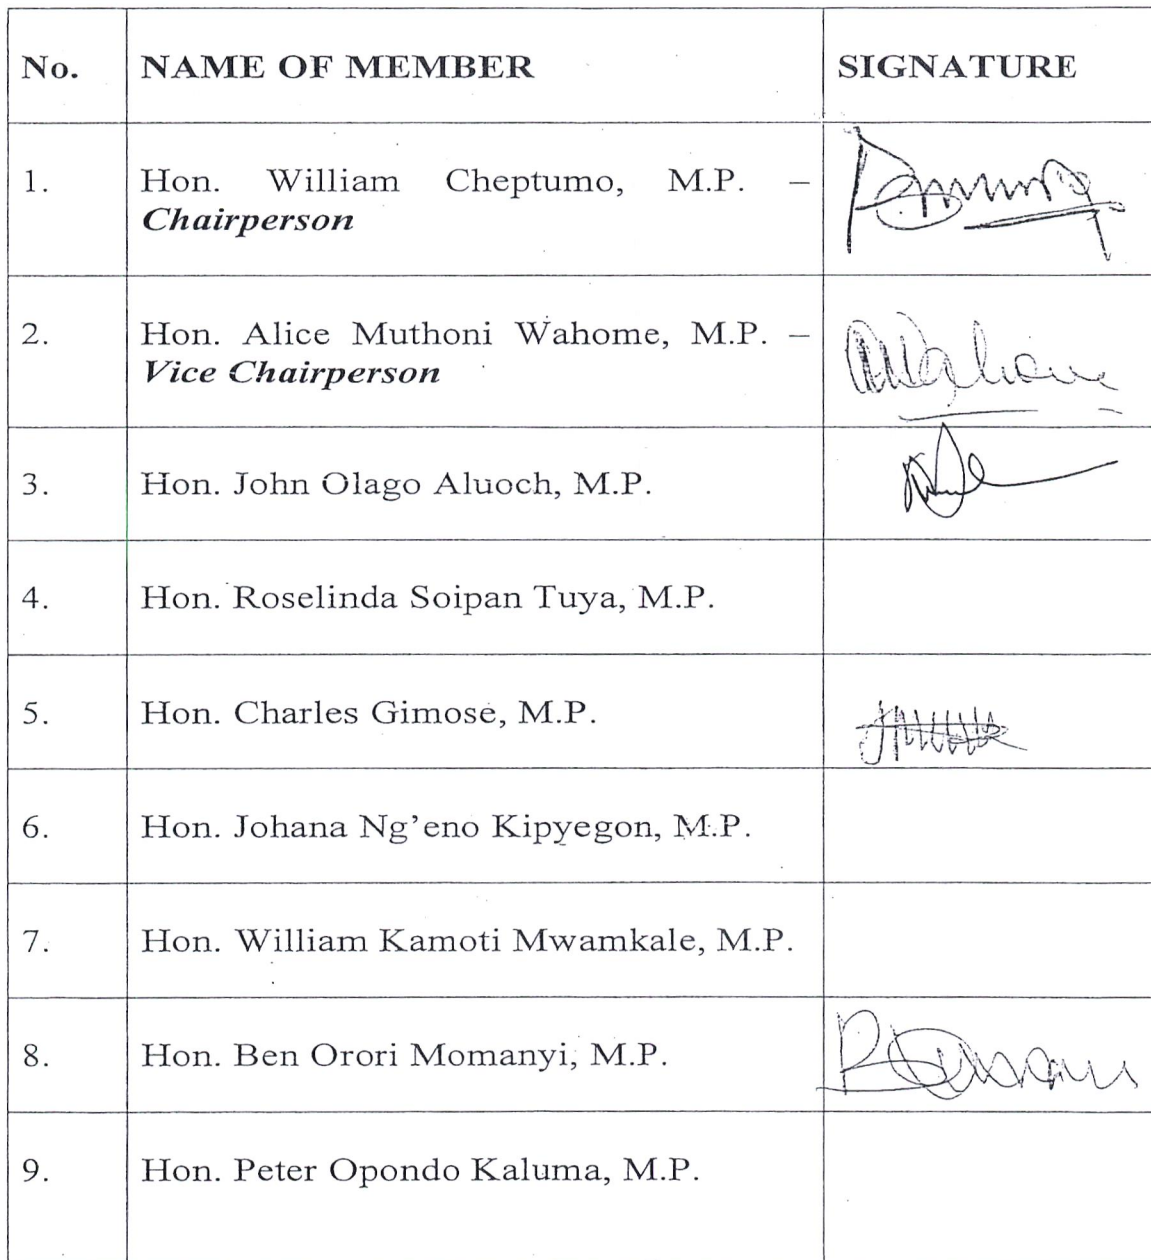 No. NAME OF MEMBER SIGNATURE
1. Hon. William Cheptumo, M.P. –
Chairperson
2. Hon. Alice Muthoni Wahome, M.P. –
Vice Chairperson
3. Hon. John Olago Aluoch, M.P.
4. Hon. Roselinda Soipan Tuya, M.P.
5. Hon. Charles Gimose, M.P.
6. Hon. Johana Ng’eno Kipyegon, M.P.
7. Hon. William Kamoti Mwamkale, M.P.
8. Hon. Ben Orori Momanyi, M.P.
9. Hon. Peter Opondo Kaluma, M.P.